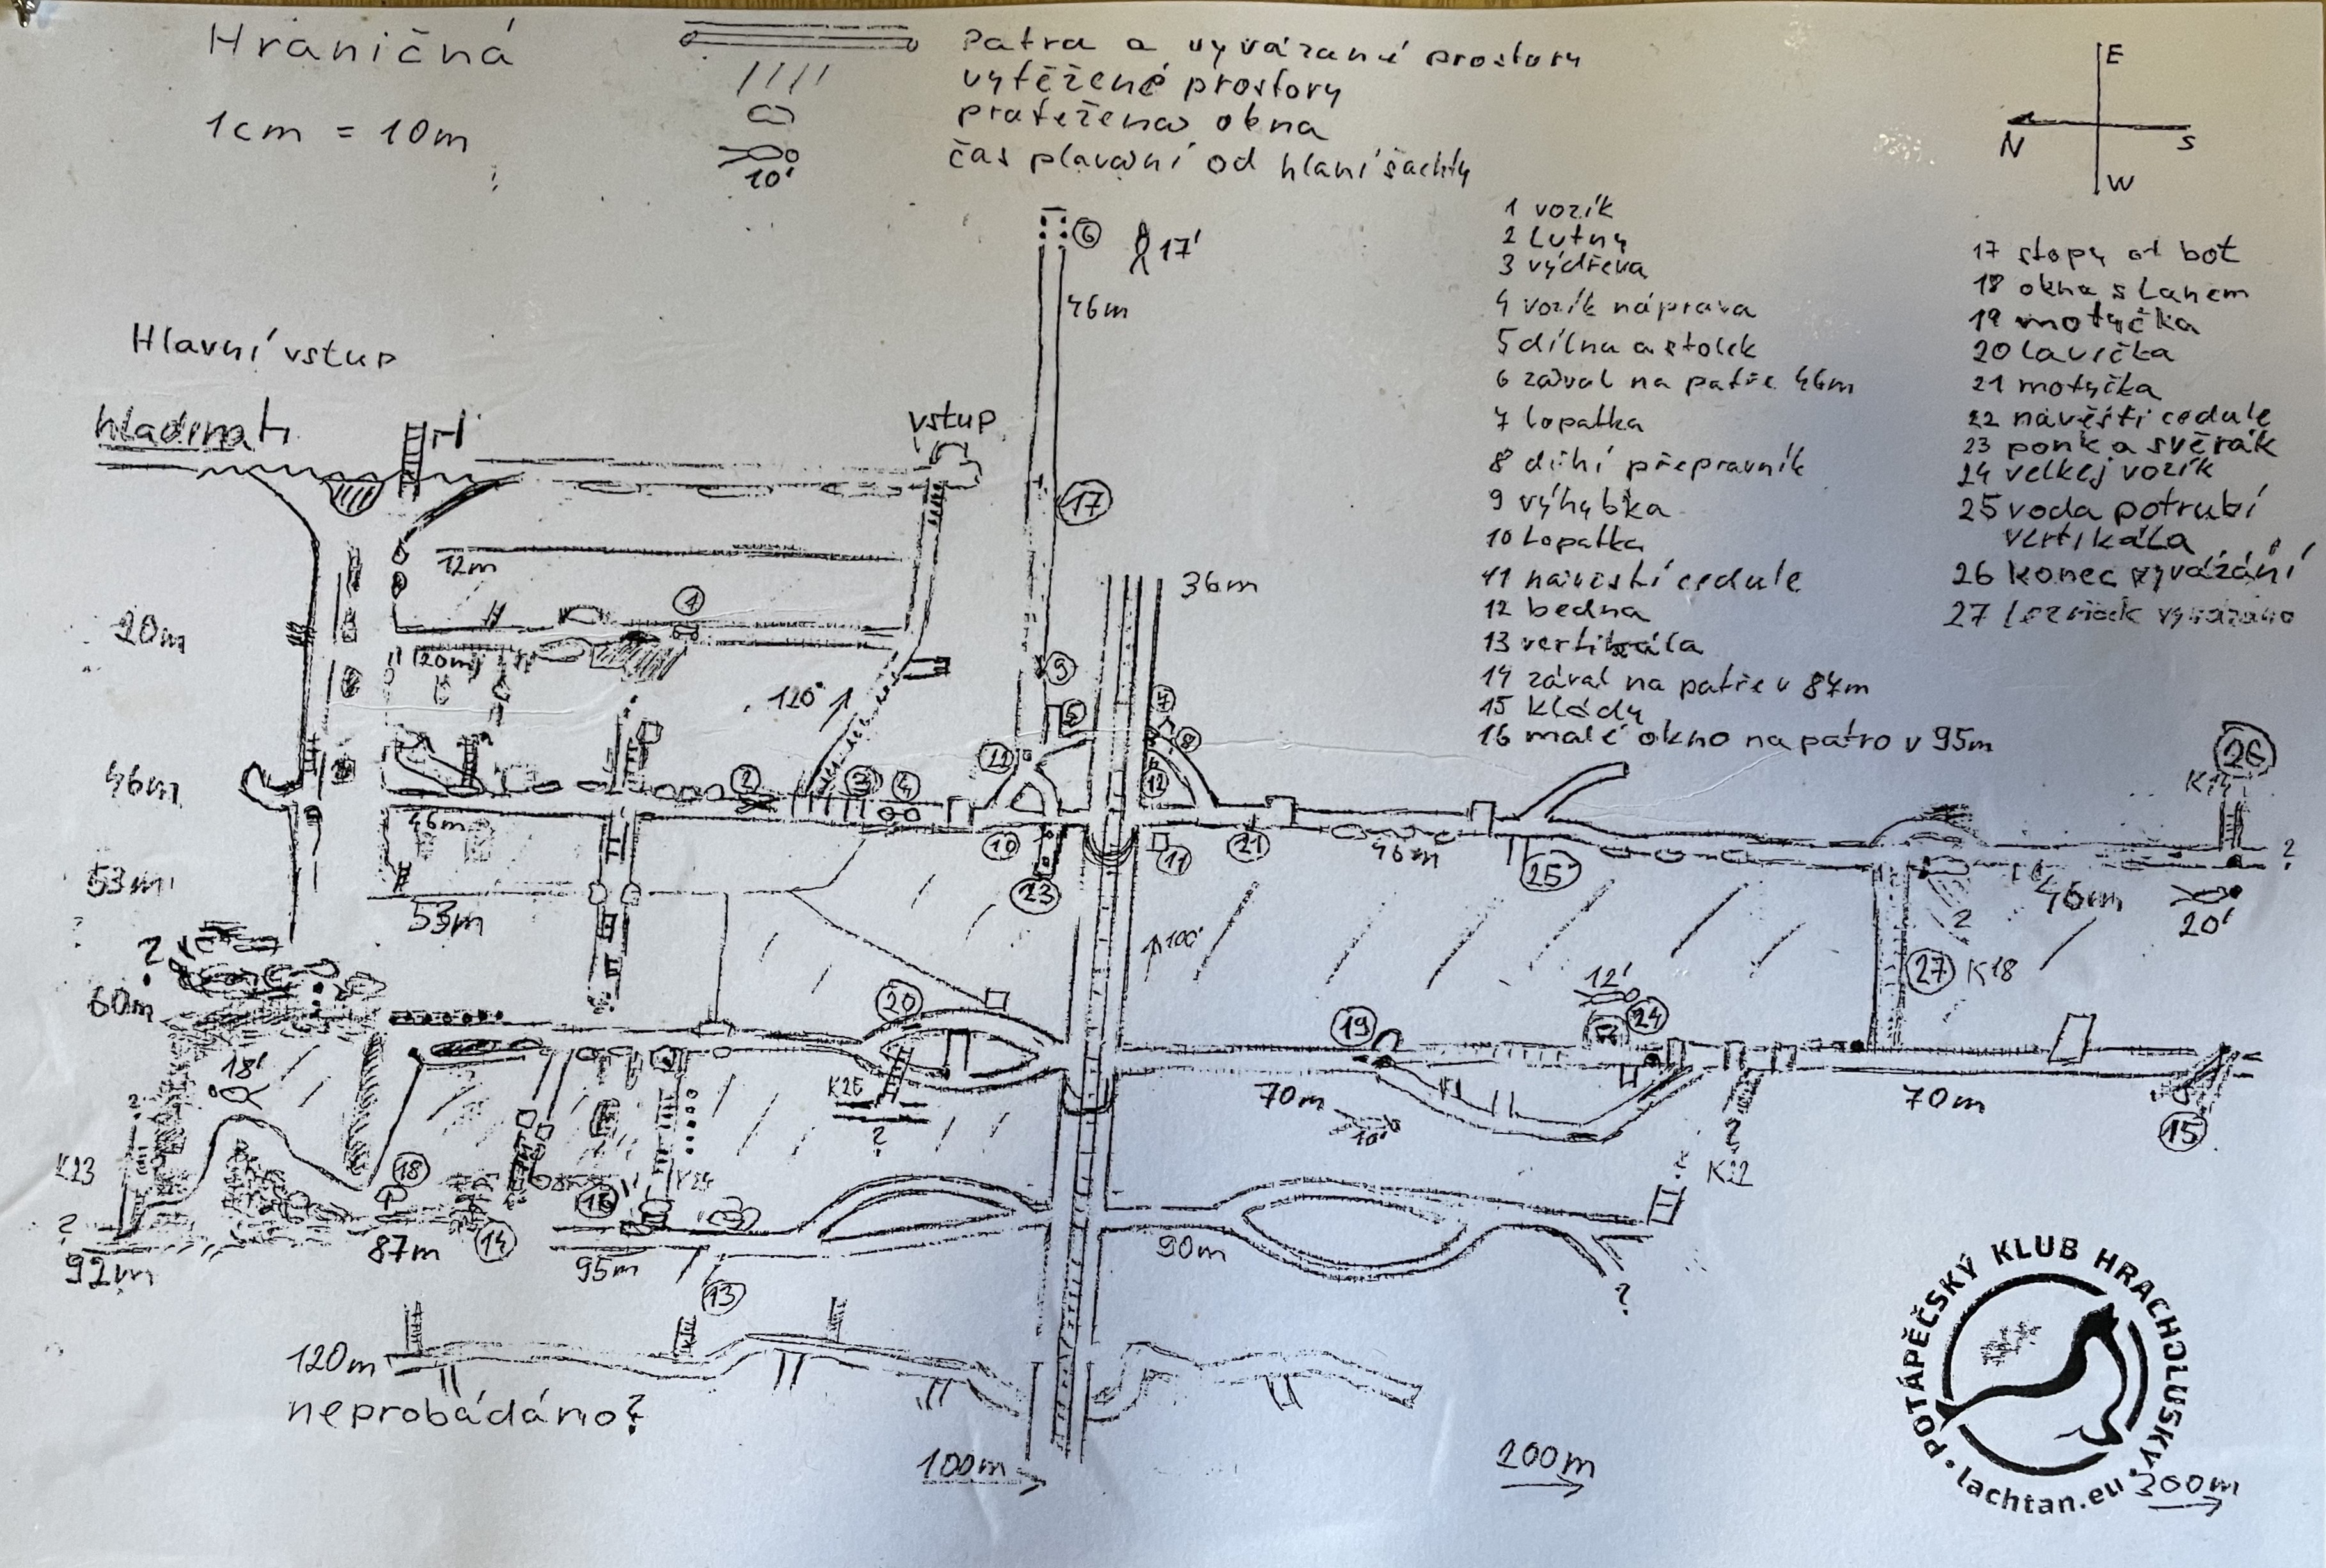 Hraničná
1cm = 10m
patra a vyvázané prostory
vytěžené prostory
protěžena okna
10'
čas plavání od hlaní šachty
E
N
S
W
1 vozík
2 Lutny
3 výdřeva
4 vozík náprava
5 dílna a stolek
6 zával na patře 46m
7 lopatka
8 důlní přepravník
9 výhybka
10 Lopatka
11 návěstí cedule
12 bedna
13 vertikála
14 zával na patře v 87m
15 klády
16 malé okno na patro v 95m
17 stopy od bot
18 okna s Lanem
19 motyčka
20 Lavička
21 motyčka
22 návěstí cedule
23 ponk a svěrák
24 velkej vozík
25 voda potrubí
vertikála
26 konec vyvázání
27 vyvázáno
Hlavní vstup
hladina
vstup
6
17'
46m
17
12m
1
20m
20m
120°
36m
9
5
7
8
22
12
46m
46m
2
3
4
10
23
11
21
46m
25
26
K14
?
46m
20'
53m
53m
100'
?
27
K18
?
60m
20
K26
?
19
12'
24
70m
10'
70m
15
18'
?
K23
?
92m
18
87m
14
16
95m
13
90m
?
K22
?
?
120m
neprobádáno?
100m
200m
300m
POTÁPĚČSKÝ KLUB HRACHOLUSKY • lachtan.eu •